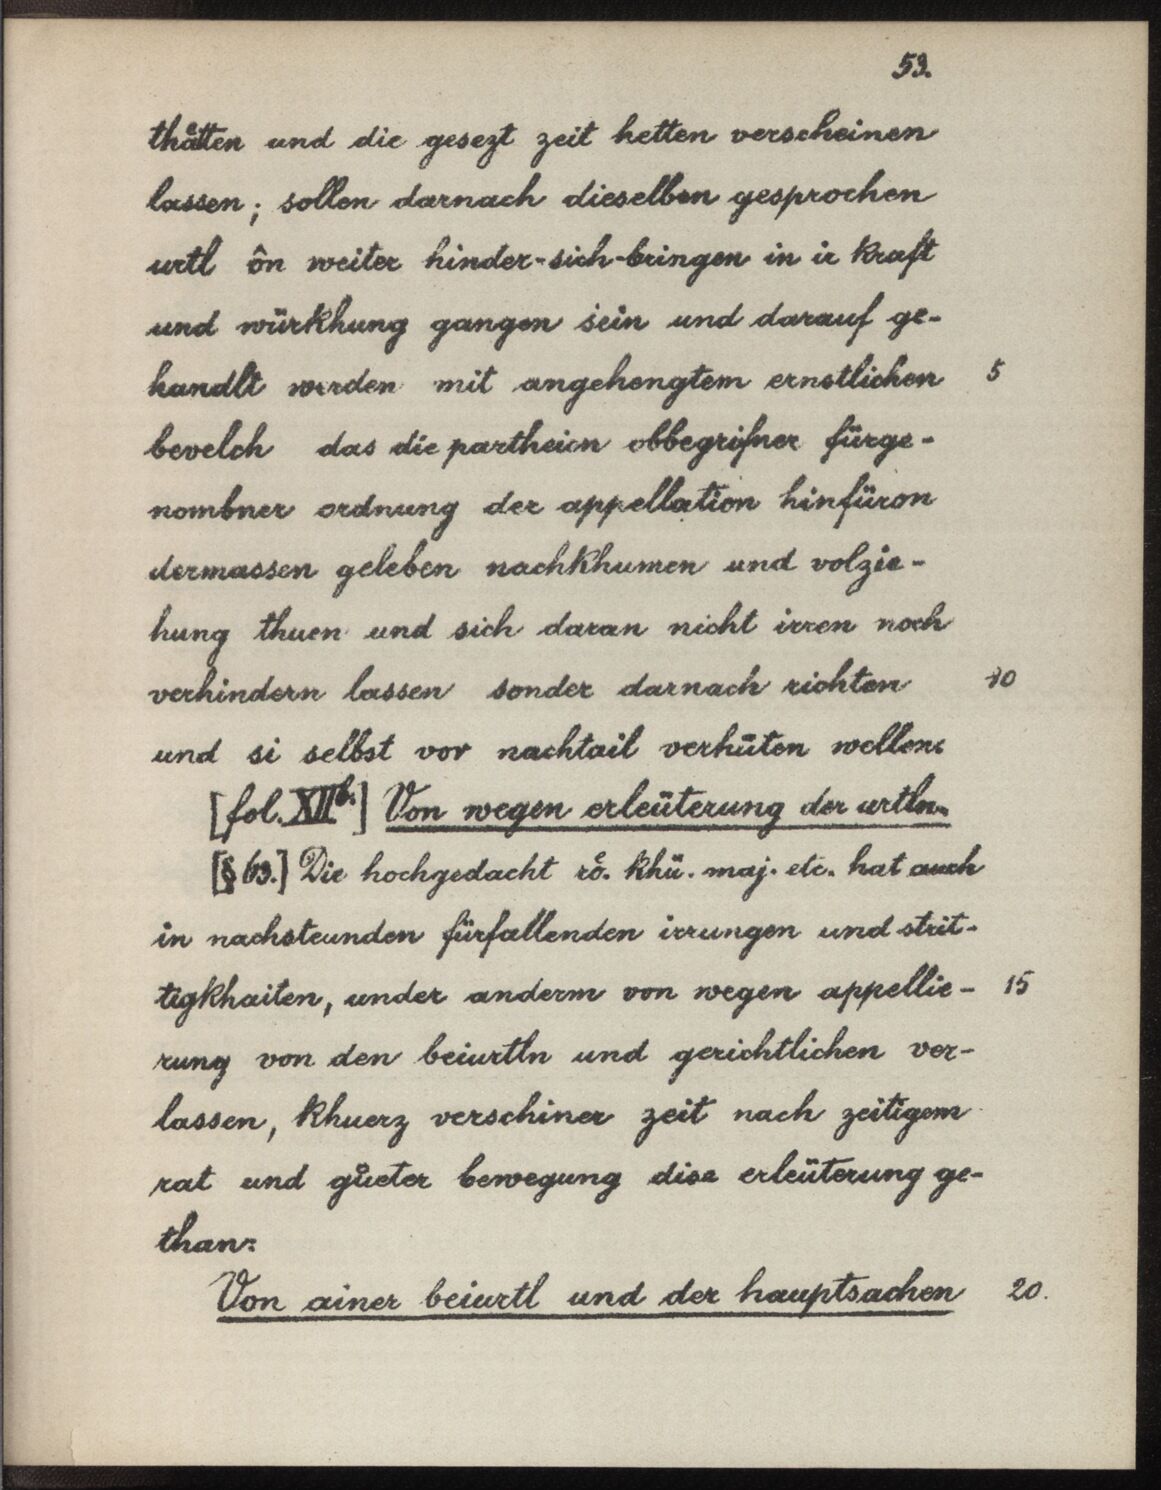 59.
thaͤtten und die gesezt zeit hetten verscheinen
lassen; sollen darnach dieselben gesprochen
urtl ôn weiter hinder-sich-bringen in ir kraft
und würkhung gangen sein und darauf ge-
handlt werden mit angehengtem ernstlichen 5
bevelch das die partheien obbegrifner fürge-
nombner ordnung der appellation hinfüron
dermassen geleben nachkhumen und volzie-
hung thuen und sich daran nicht irren noch
verhindern lassen sonder darnach richten 10
und si selbst vor nachtail verhüten wellen.
[fol. XIIb.] Von wegen erleüterung der urtln.
[§ 69.] Die hochgedacht roͤ. khü. maj. etc. hat auch
in nachsteunden fürfallenden irrungen und strit-
tigkhaiten, under anderm von wegen appellie- 15
rung von den beiurtln und gerichtlichen ver-
lassen, khuerz verschiner zeit nach zeitigem
rat und gůeter bewegung dise erleüterung ge-
than:
Von ainer beiurtl und der hauptsachen 20.